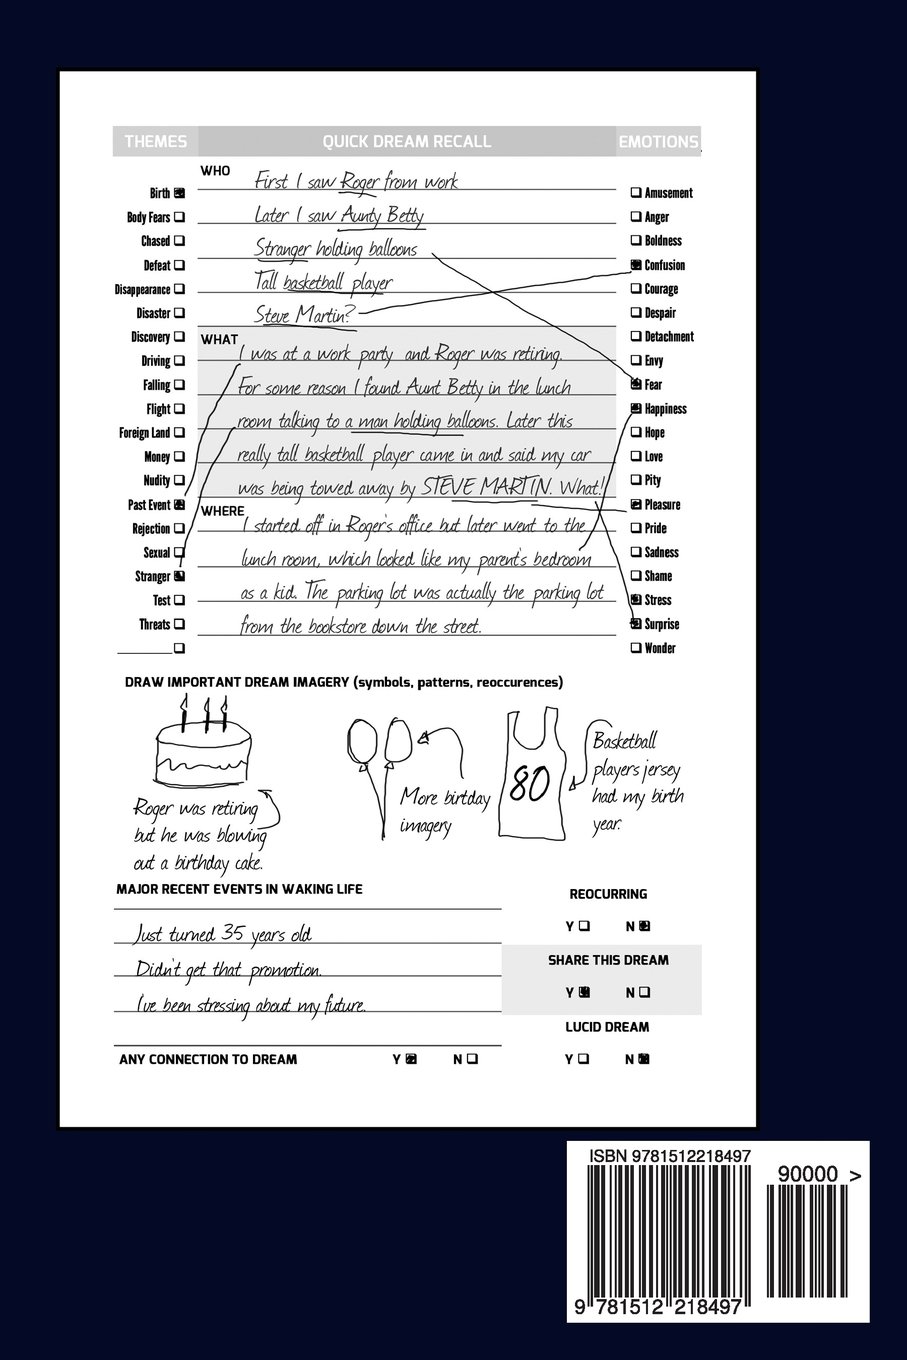 THEMES QUICK DREAM RECALL EMOTIONS
Birth
Body Fears
Chased
Defeat
Disappearance
Disaster
Discovery
Driving
Falling
Flight
Foreign Land
Money
Nudity
Past Event
Rejection
Sexual
Stranger
Test
Threats
WHO
First I saw Roger from work
Later I saw Aunty Betty
Stranger holding balloons
Tall basketball player
Steve Martin?
WHAT
I was at a work party and Roger was retiring.
For some reason I found Aunt Betty in the lunch
room talking to a man holding balloons. Later this
really tall basketball player came in and said my car
was being towed away by STEVE MARTIN. What!
WHERE
I started off in Roger's office but later went to the
lunch room, which looked like my parent's bedroom
as a kid. The parking lot was actually the parking lot
from the bookstore down the street.
Amusement
Anger
Boldness
Confusion
Courage
Despair
Detachment
Envy
Fear
Happiness
Hope
Love
Pity
Pleasure
Pride
Sadness
Shame
Stress
Surprise
Wonder
DRAW IMPORTANT DREAM IMAGERY (symbols, patterns, reoccurences)
Roger was retiring
but he was blowing
out a birthday cake.
More birtday
imagery
80
Basketball
players jersey
had my birth
year.
MAJOR RECENT EVENTS IN WAKING LIFE
Just turned 35 years old
Didn't get that promotion.
I've been stressing about my future.
ANY CONNECTION TO DREAM Y N
REOCURRING
Y N
SHARE THIS DREAM
Y N
LUCID DREAM
Y N
ISBN 9781512218497
90000 >
9 781512 218497